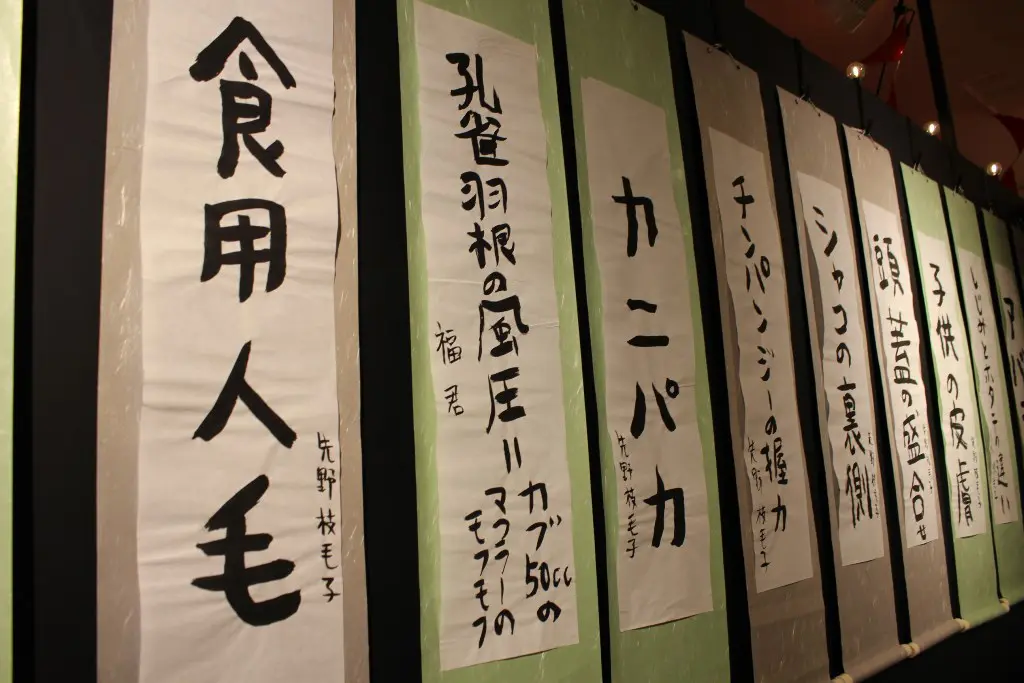 食用人毛
先野枝毛子
孔雀羽根の風圧=
カブ50ccの
マフラーの
モフモフ
福君
カニパカ
先野枝毛子
チンパンジーの握力
先野枝毛子
シャコの裏側
頭蓋の盛合せ
子供の皮膚